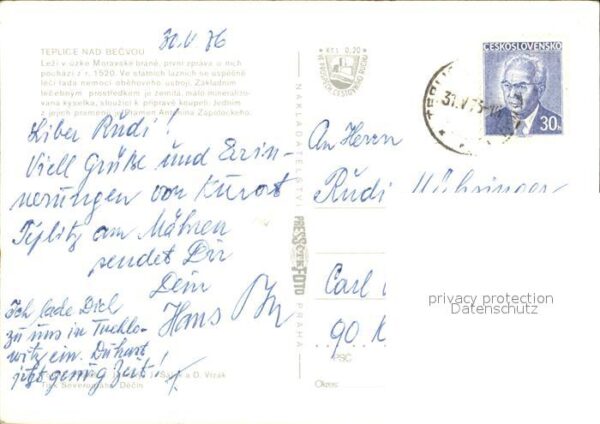 30.V 76
TEPLICE NAD BEČVOU
Leží v úzké Moravské bráně, první zpráva o nich
pochází z r. 1520. Ve statních lázních se úspěšně
léčí řada nemocí oběhového ústrojí. Základním
léčebným prostředkem je zemitá, málo mineralizo-
vaná kyselka, sloužící k přípravě koupelí. Jedním
z jejich pramenů je Pramen Antonína Zápotockého.
Liber Rudi!
Viell Grüße und Erin-
nerungen von Kurort
Teplitz am Mähren
sendet Dir
Dein
Hans
Ich lade Dich
zu uns in
witz ein. Du hast
jetzt genug Zeit!
a D. Vrzák
Tisk Severografia Děčín
NAKLADATELSTVÍ
PRESSFOTO
PRAHA
Kčs 0,20
VE PROSPĚCH CESTOVNÍHO RUCHU
ČESKOSLOVENSKO
30h
31.V.76
An Herrn
Rudi
Carl
90
PSČ
Okres:
privacy protection
Datenschutz